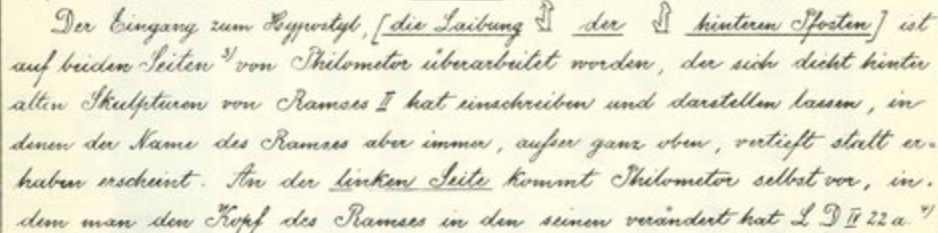 Der Eingang zum Hypostyl, [die Laibung ⇳ der ⇳ hinteren Pfosten] ist
auf beiden Seiten 3) von Philometor überarbeitet worden, der sich dicht hinter
alten Skulpturen von Ramses II hat einschreiben und darstellen lassen, in
denen der Name des Ramses aber immer, außer ganz oben, vertieft statt er-
haben erscheint. An der linken Seite kommt Philometor selbst vor, in-
dem man den Kopf des Ramses in den seinen verändert hat L D IV 22 a. 4)